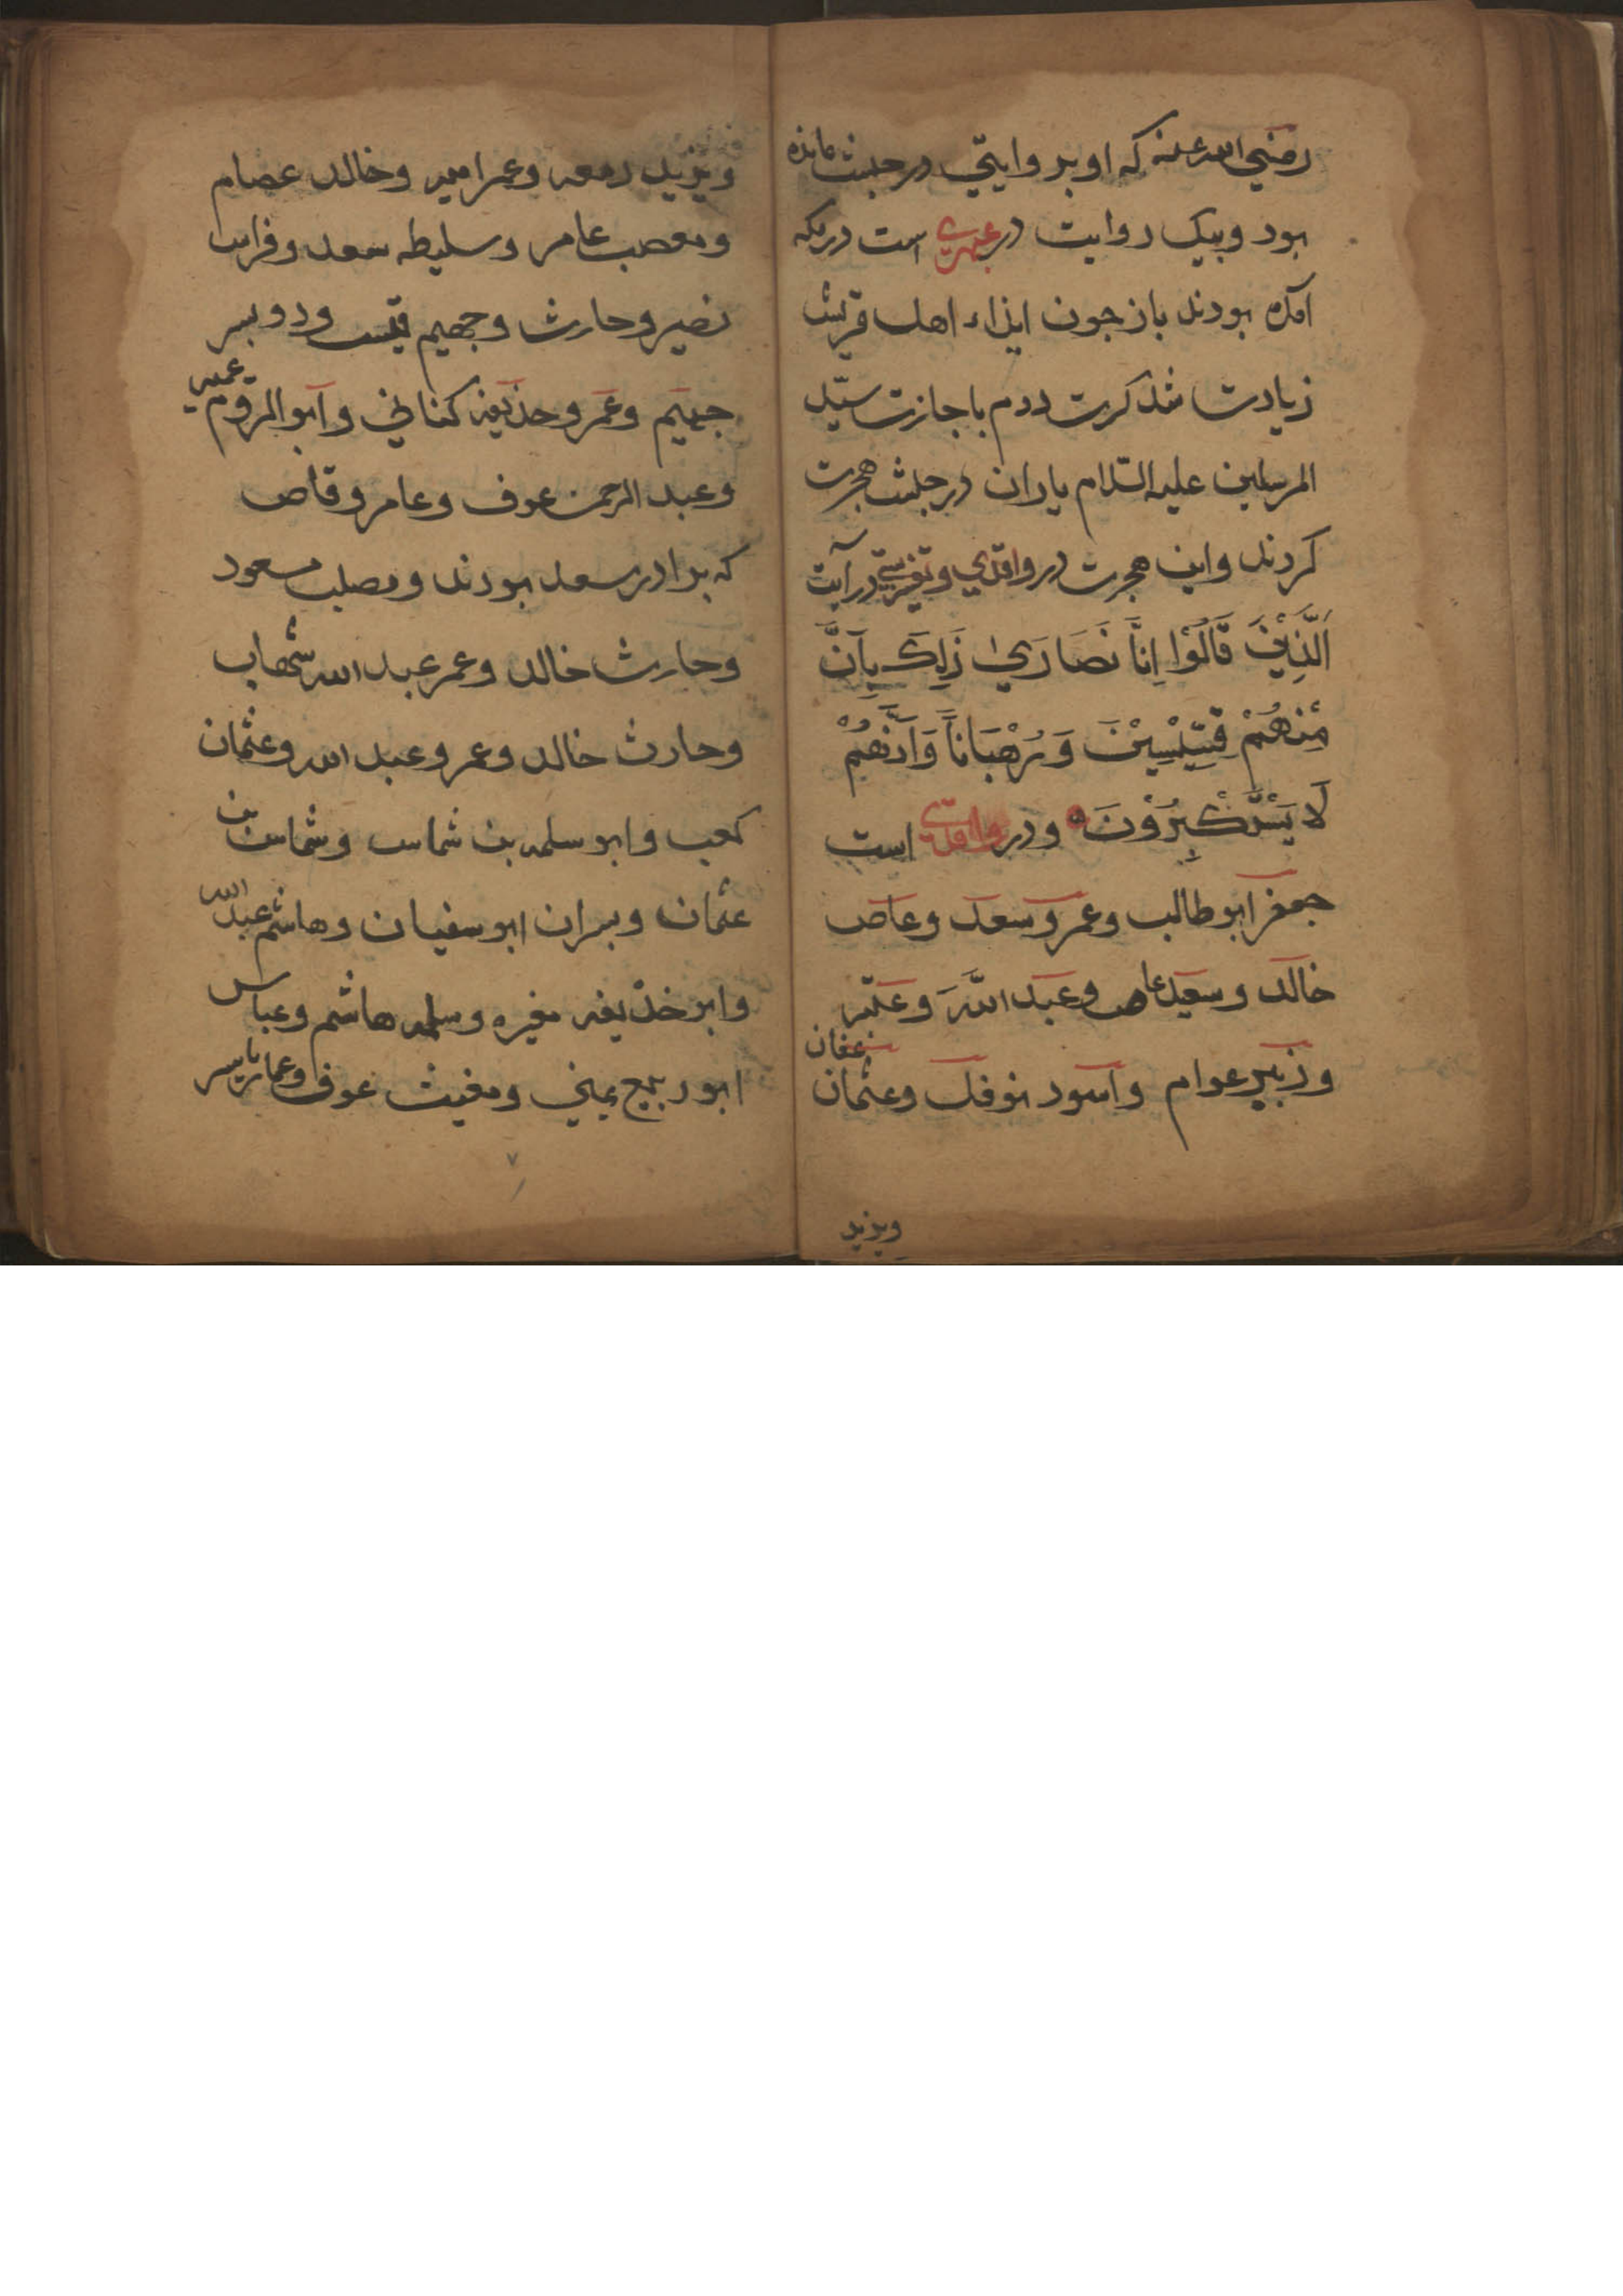 رضي الله عنه که او بر وايتي در حبش مانده
بود و بيک روايت در عبهري است در مکه
آمده بودند باز چون ايذاء اهل قريش
زيادت شد کرت دوم باجازت سيّد
المرسلين عليه السّلام ياران در حبش هجرت
کردند واين هجرت در واقدي و تفسير در آيت
اَلَّذِيْنَ قَالُوْا اِنَّا نَصَارَيٰ ذَلِكَ بِاَنَّ
مِنْهُمْ قِسِّيْسِيْنَ وَرُهْبَانًا وَاَنَّهُمْ
لَا يَسْتَكْبِرُوْنَ و در واقدي است
جعفر ابو طالب و عمرو سعد و عاص
خالد و سعيد عاص و عبد الله و عتبه
و زبير عوام و اسود نوفل و عثمان عفان
ويزيد
ويزيد زمعه و عمر اميه و خالد عصام
و مصعب عامر و سليطه سعد و فراس
نضير و حارث و جهيم قيس و دو پسر
جهيم و عمر و حذيفه کناني و ابو الروم عمير
و عبد الرحمن عوف و عامر وقاص
که برادر سعد بودند و مصلب مسعود
و حارث خالد و عمر عبد الله شهاب
و حارث خالد و عمرو عبد الله و عثمان
کعب و ابو سلمه بن شماس و شماس بن
عثمان و پسران ابو سفيان و هاشم عبد الله
و ابو خذيفه مغيره و سلمه هاشم و عباس
ابو ربيع يمني و مغيث عوف و عمار ياسر
٧